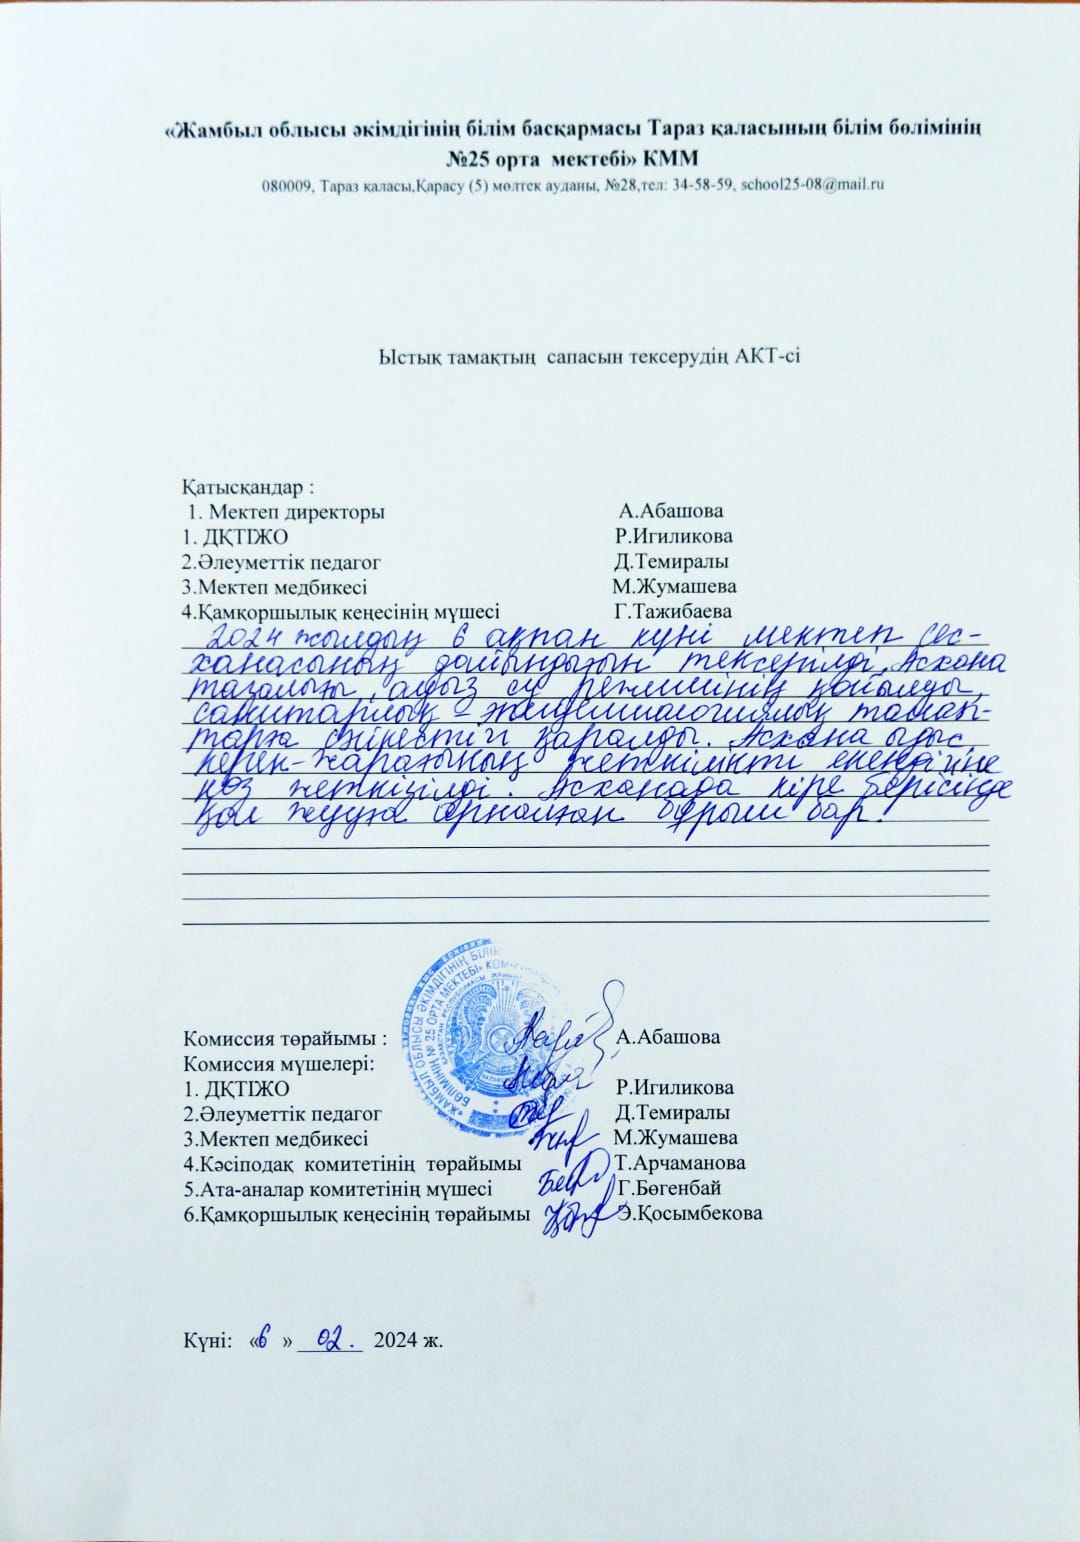 «Жамбыл облысы әкімдігінің білім басқармасы Тараз қаласының білім бөлімінің
№25 орта мектебі» КММ
080009, Тараз қаласы,Қарасу (5) мөлтек ауданы, №28,тел: 34-58-59, school25-08@mail.ru
Ыстық тамақтың сапасын тексерудің АКТ-сі
Қатысқандар :
1. Мектеп директоры А.Абашова
1. ДҚТІЖО Р.Игиликова
2.Әлеуметтік педагог Д.Темиралы
3.Мектеп медбикесі М.Жумашева
4.Қамқоршылық кеңесінің мүшесі Г.Тажибаева
2024 жылдың 6 ақпан күні мектеп
ханасының дайындығын тексерілді. Асхана
тазалығы, ауыз су режимінің қойылуы,
санитарлық - эпидемиологиялық талап-
тарға сәйкестігі қаралды. Асхана ыдыс,
керек-жарағының жеткілікті екендігіне
көз жеткізілді. Асханада кіре берісінде
қол жууға арналған бұрыш бар.
Комиссия төрайымы : А.Абашова
Комиссия мүшелері:
1. ДҚТІЖО Р.Игиликова
2.Әлеуметтік педагог Д.Темиралы
3.Мектеп медбикесі М.Жумашева
4.Кәсіподақ комитетінің төрайымы Т.Арчаманова
5.Ата-аналар комитетінің мүшесі Г.Бөгенбай
6.Қамқоршылық кеңесінің төрайымы Э.Қосымбекова
Күні: «6 » 02. 2024 ж.